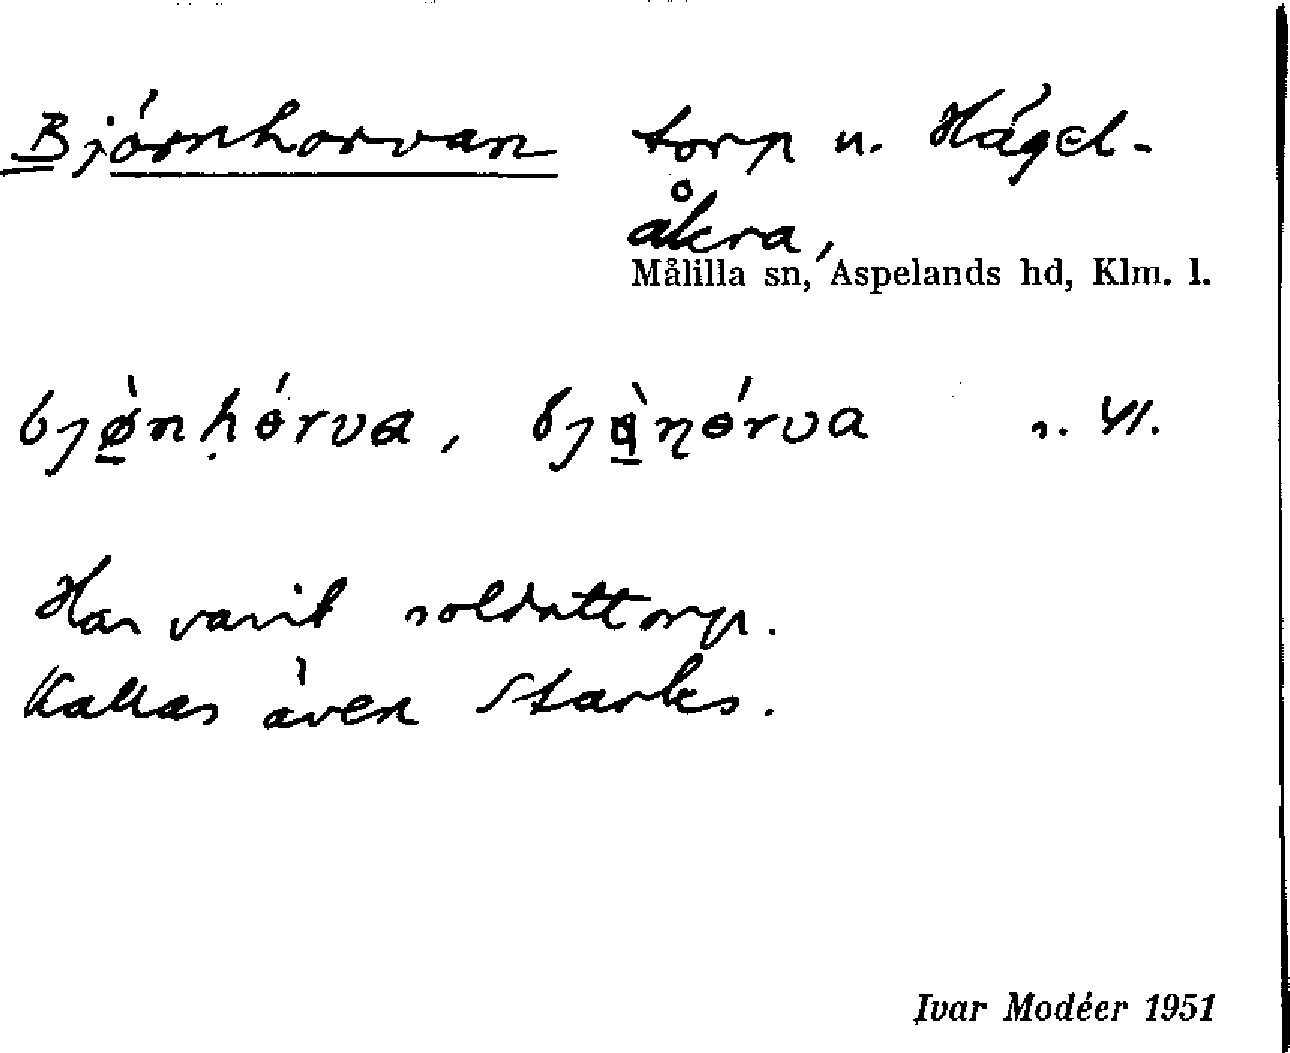 Björnhorvan torp u. Hägel-
åkra,
Målilla sn, Aspelands hd, Klm. l.
Har varit soldattorp.
Kallas även Starks.
Ivar Modéer 1951